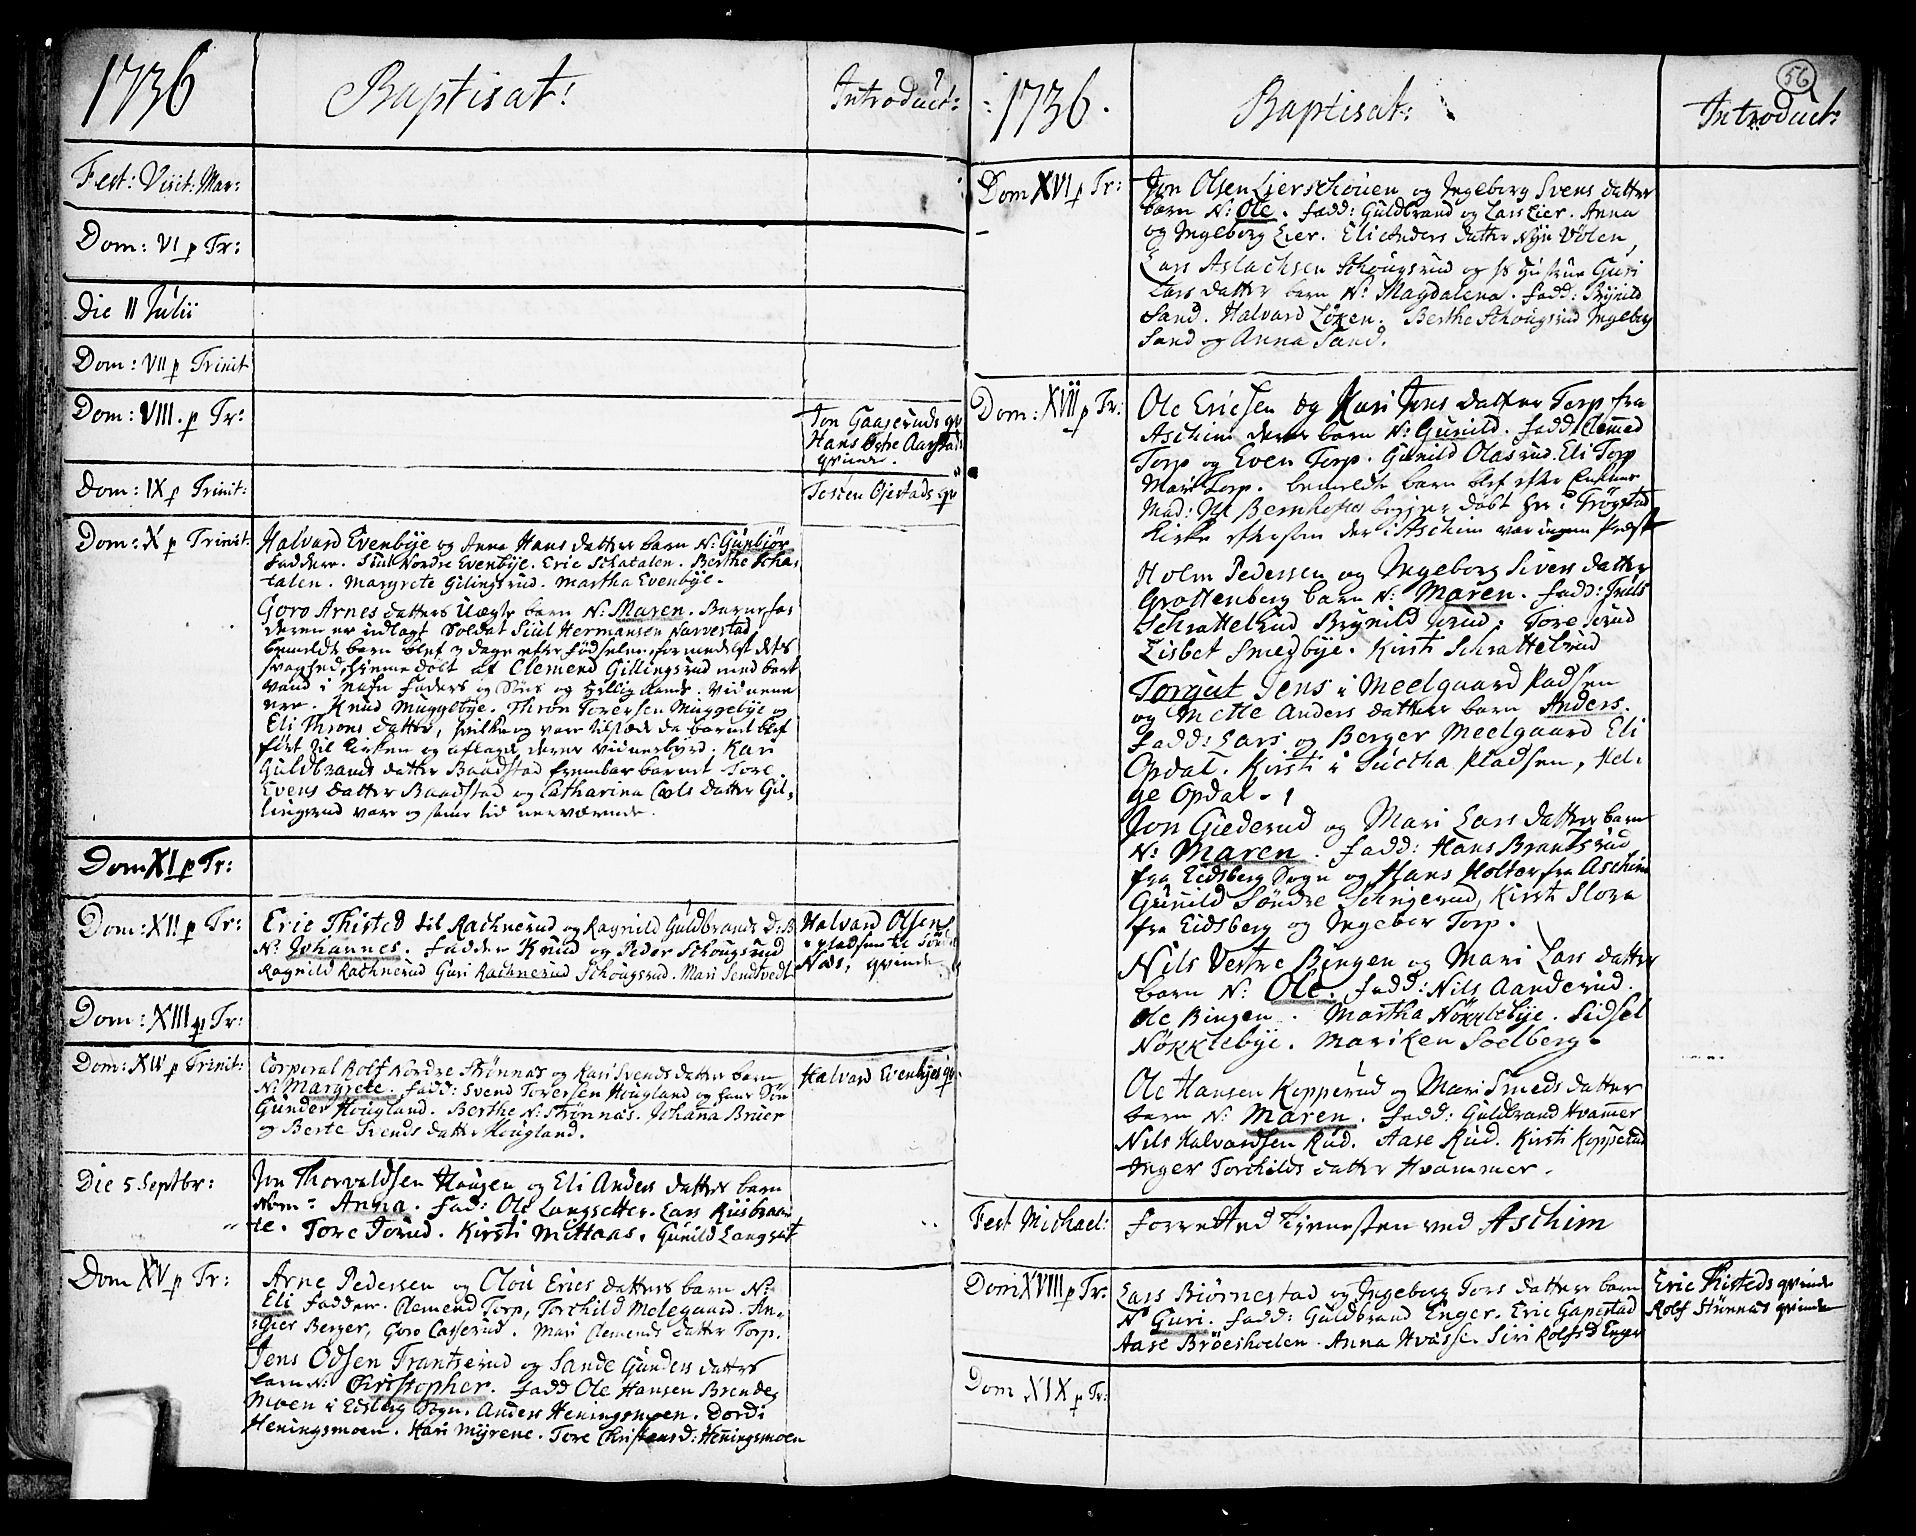 1736
Baptisat:
Introduct:
Fest: Visit: Mar:
Dom: VI p Tr:
Die 11 Julii
Dom: VII p Trinit
Dom: VIII. p Tr:
Jon Gaaseruds qv
Hans Østre Aarstads
qvinde.
Dom: IX p Trinit:
Tosten Ojestads qv
Dom: X p Trinit:
Halvard Evenbÿe og Anna Hans datters barn N: Gunbiör
Faddere. Siul Nordre Evenbÿe. Eric Schatalen. Berthe Scha-
talen. Margrete Gilingsrud. Martha Evenbÿe.
Goro Arnes datters Uægte barn N: Maren. Barnefa-
deren er udlagt Soldat Siul Hermansen Narvestad
bemeldte barn blef 3 dage efter födselen formedelst dets
svaghed hiemme döbt af Clemend Gillingsrud med bart
vand i Nafn Faders og Söns og Hellig Aands. Vidnerne
ere. Knud Muggebÿe. Thron Torersen Muggebÿe og
Eli Throns datter, hvilke og vare tilstæde da barnet blef
fört til Kirken og aflagde deres vidnesbÿrd. Kari
Guldbrands datter Baadstad frembar barnet Tore
Evens datter Baadstad og Catharina Carls datter Gil-
lingsrud vare og samme tid nerværende.
Dom XI p Tr:
Dom: XII p Tr:
Eric Thisted til Rachnerud og Ragnild Guldbrands D: B
N: Johannes. Fadder Knud og Peder Schougsrud
Ragnild Rachnerud Guri Rachnerud Schougsrud. Mari Sendtvedt
Halvard Olsens
i pladsen til Söndre
Næs, qvinde
Dom: XIII p Tr:
Dom: XIV p Trinit:
Corporal Rolf Nordre Strønnæs og Kari Svends datters barn
N: Margrete. Fadd: Svend Torersen Hougland og hans Sön
Gunder Hougland. Berthe N: Strønnæs. Johanna Bruer
og Berte Svends datter Hougland.
Halvard Evenbÿes qv.
Die 5 Septbr:
Jon Thorvaldsen Haugen og Eli Anders datters barn
Nom: Anna. Fad: Ole Langsetter. Lars Riisbraa-
te. Tore Jorud. Kirsti Mithaas. Gunild Langset
Dom XV p Tr:
Arne Pedersen og Olou Erics datters barn N:
Eli Faddere. Clemend Torp, Torchild Melegaard. An-
Gier Berger, Goro Casserud. Mari Clemends datter Torp.
Jens Odsen Frantserud og Sande Gunders datters
barn N: Christopher. Fadd Ole Hansen Brende-
moen i Edsberg Sogn. Anders Heningsmoen. Dordi
Heningsmoen. Kari Mÿrene. Tore Christens d: Heningsmoen
56
1736.
Baptisat:
Introduct:
Dom XVI p Tr:
Jon Olsen Lierschouen og Ingeborg Svens datter
barn N: Ole. Fadd: Guldbrand og Lars Lier. Anna
og Ingeborg Lier. Eli Anders datter Nÿe Volen,
Lars Aslachsen Schougsrud og hs Hustrue Guri
Lars datter barn N: Magdalena. Fadd: Brÿnild
Sand. Halvard Löken. Berthe Schougsrud Ingeborg
Sand og Anna Sand.
Dom: XVII p Tr:
Ole Ericsen og Kari Jens datter Torp fra
Aschim deres barn N: Gunild. Fadd: Clemed
Torp og Even Torp. Gunild Olasrud. Eli Torp
Mari Torp. bemeldte barn blef efter
Mad: Sl Bernhofts begier döbt her i Trögstad
Kirke eftersom der i Aschim var ingen Præst
Holm Pedersen og Ingeborg Sivers datter
Grottenberg barn N: Maren. Fadd: Truls
Schrattelrud Brÿnild Jorud. Tore Jorud
Lisbet Smedbÿe. Kirsti Schrattelrud
Torgut Jens i Meelgaard Pladsen
og Mette Anders datter barn Anders.
Fadd: Lars og Berger Meelgaard Eli
Opdal. Kirsti i Suctha Pladsen, Hel-
ge Opdal.
Jon Giederud og Mari Lars datters barn
N: Maren. Fadd: Hans Brantsrud
fra Eidsberg Sogn og Hans Holter fra Aschim
Gunild Söndre Schngerud, Kirsti Slora
fra Eidsberg og Ingebor Torp.
Nils Vestre Bingen og Mari Lars datter
barn N: Ole. Fadd: Nils Aanderud.
Ole Bingen. Martha Nökklebÿe. Sidsel
Nökklebÿe. Mariken Soelberg.
Ole Hansen Kopperud og Mari Smeds datter
barn N: Maren. Fadd: Guldbrand Hvammer
Nils Halvardsen Rud. Aase Rud. Kirsti Kopperud
Inger Torchilds datter Hvammer.
Fest Michael:
Forrettted Tjenesten ved Aschim
Dom XVIII p Tr:
Lars Biörnestad og Ingeborg Tors datter barn
N Guri. Fadd: Guldbrand Enger. Eric Gapestad
Aase Bröesholen. Anna Hvasse. Siri Rolfs d Enger
Eric Thisteds qvinde
Rolf Stönnæs qvinde
Dom XIX p Tr: